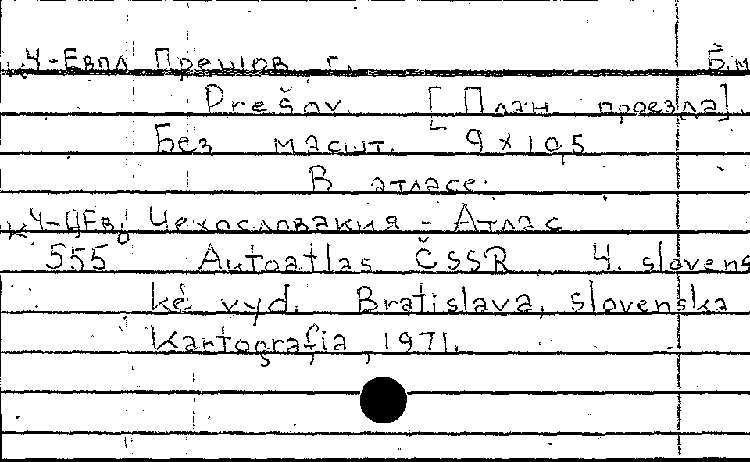 Ч-Евпл Прешов, г. Б.м
Prešov. [План проезда].
Без масшт. 9 х 10,5
В атласе:
к Ч-ЦЕв, Чехословакия - Атлас
555 Autoatlas ČSSR. 4. slovens
ké vyd. Bratislava, Slovenska
Kartografia, 1971.